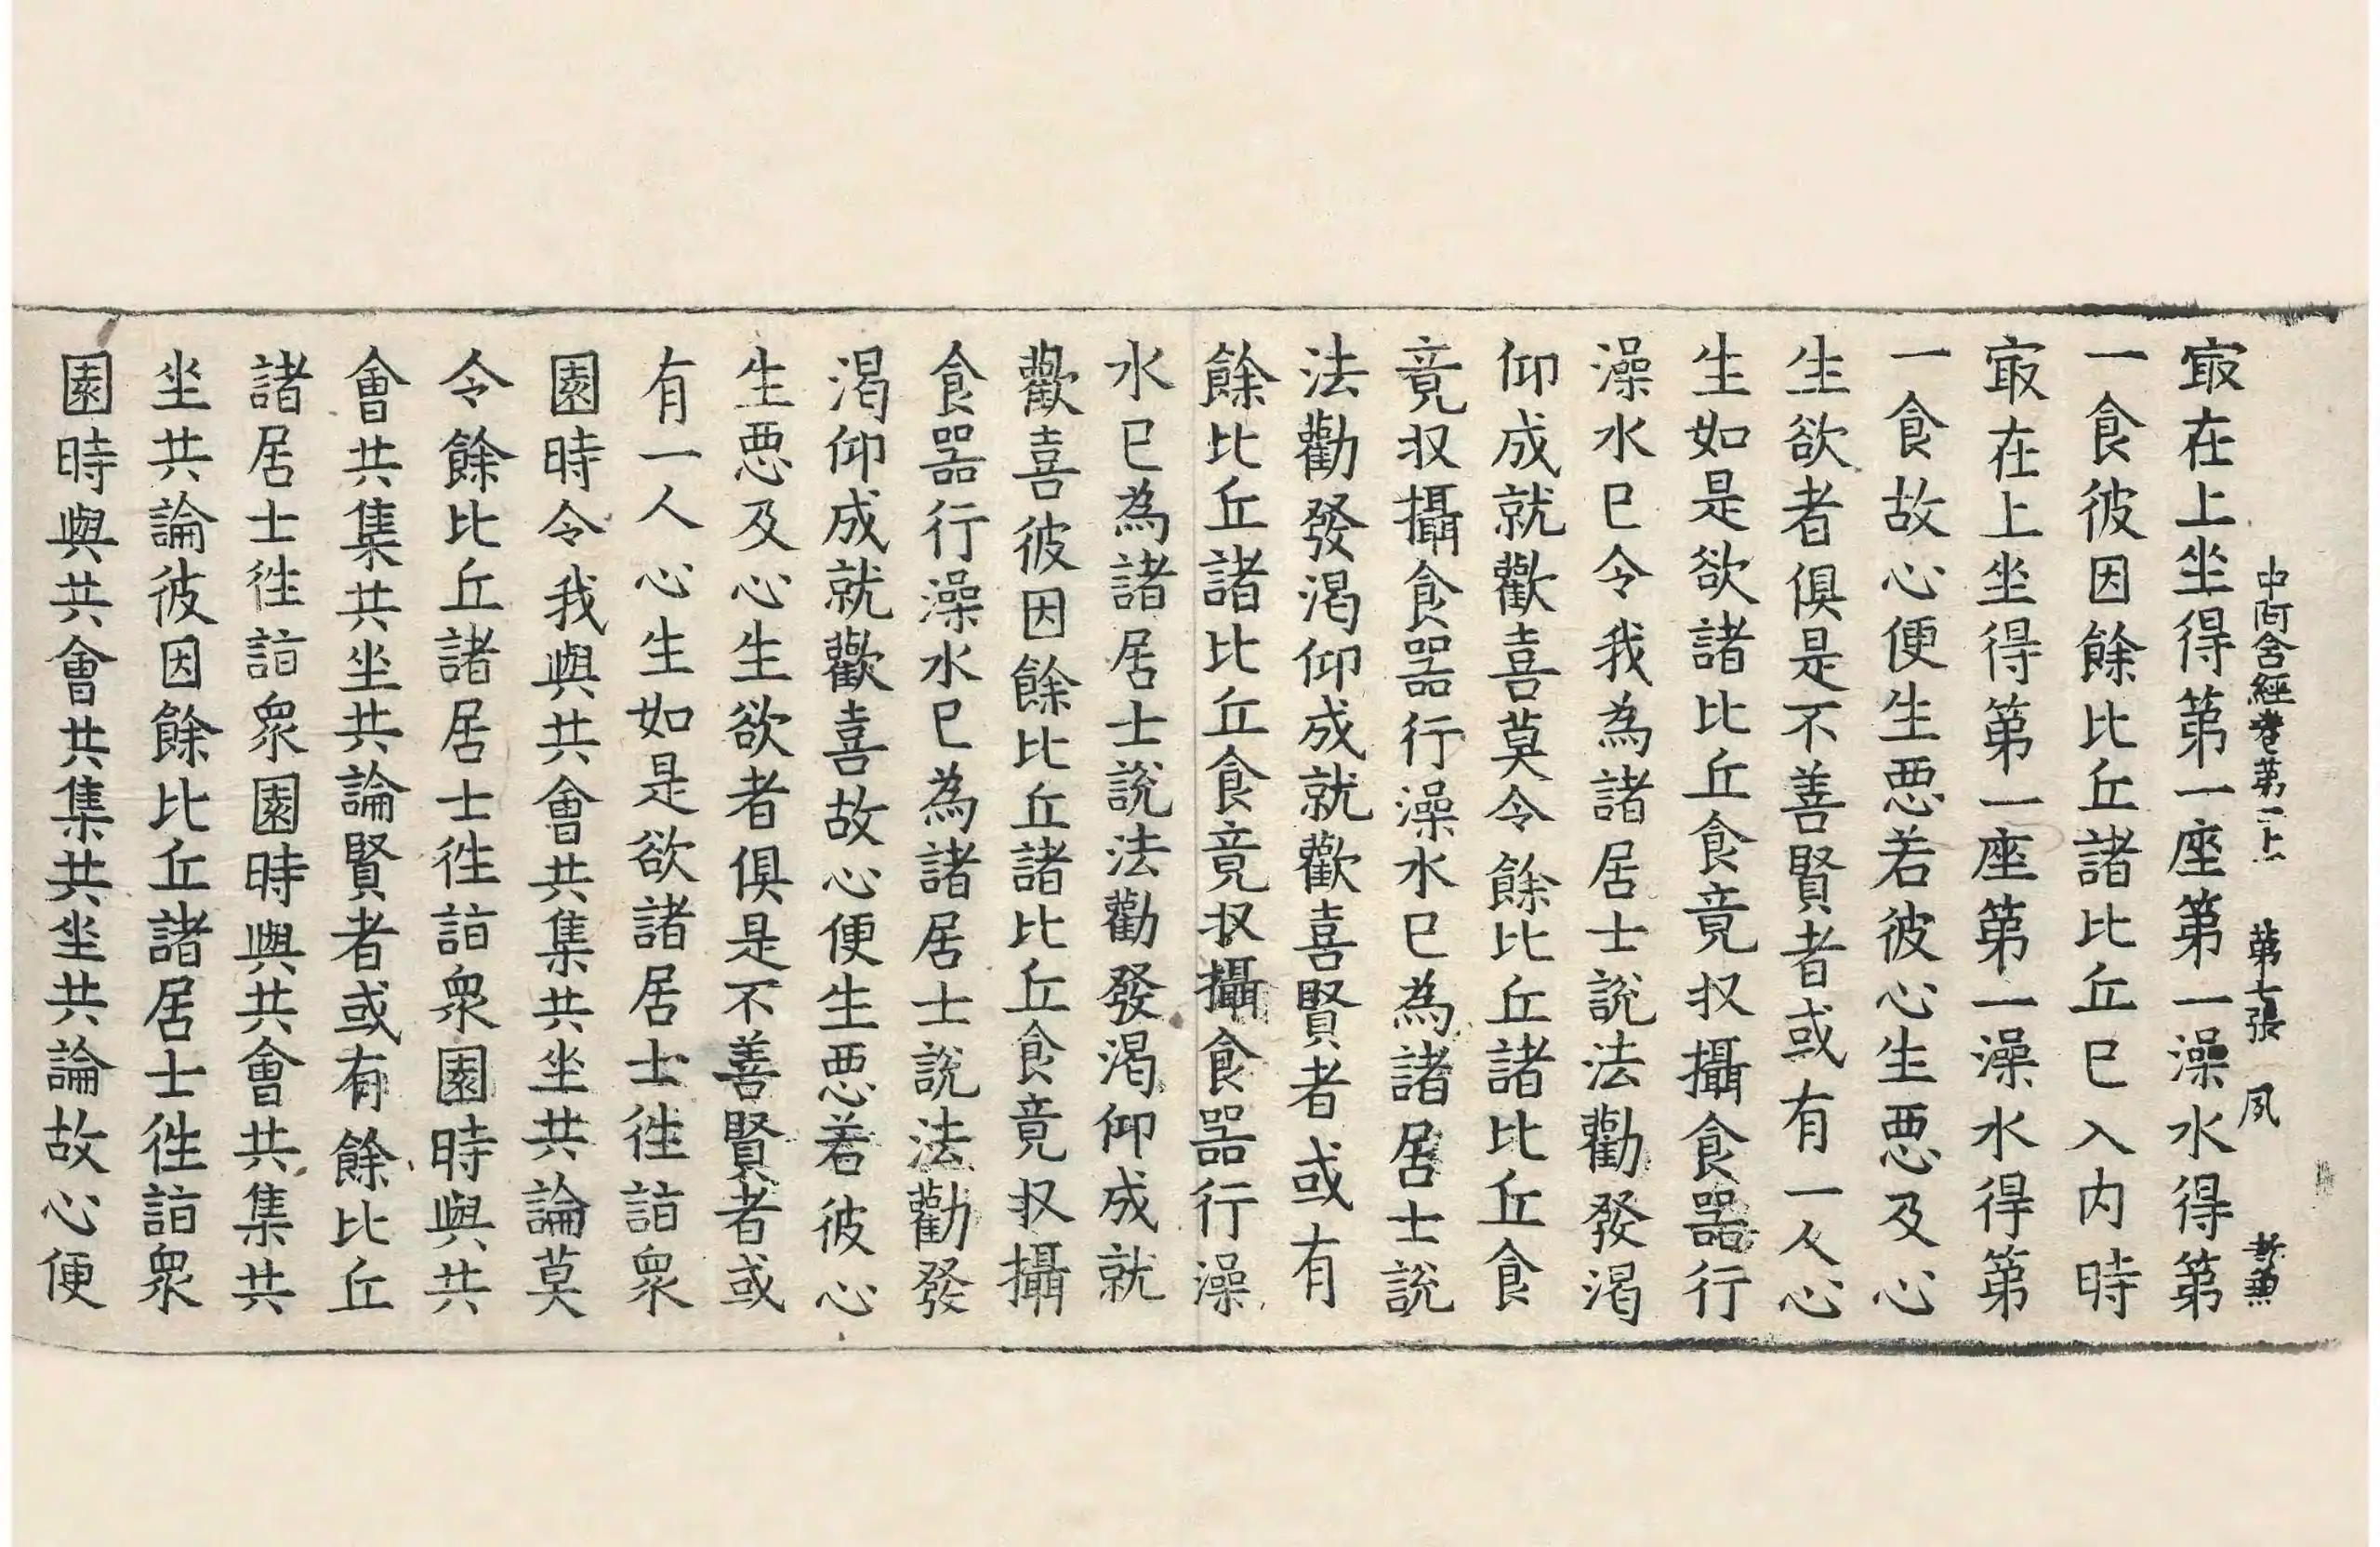 中阿含經卷第二上 第七張 夙
㝡在上坐得第一座第一澡水得第
一食彼因餘比丘諸比丘已入内時
㝡在上坐得第一座第一澡水得第
一食故心便生惡若彼心生惡及心
生欲者俱是不善賢者或有一人心
生如是欲諸比丘食竟収攝食器行
澡水已令我為諸居士說法勸發渴
仰成就歡喜莫令餘比丘諸比丘食
竟収攝食器行澡水已為諸居士說
法勸發渴仰成就歡喜賢者或有
餘比丘諸比丘食竟収攝食器行澡
水已為諸居士說法勸發渴仰成就
歡喜彼因餘比丘諸比丘食竟収攝
食器行澡水已為諸居士說法勸發
渴仰成就歡喜故心便生惡若彼心
生惡及心生欲者俱是不善賢者或
有一人心生如是欲諸居士徃詣眾
園時令我與共會共集共坐共論莫
令餘比丘諸居士徃詣眾園時與共
會共集共坐共論賢者或有餘比丘
諸居士徃詣眾園時與共會共集共
坐共論彼因餘比丘諸居士徃詣眾
園時與共會共集共坐共論故心便